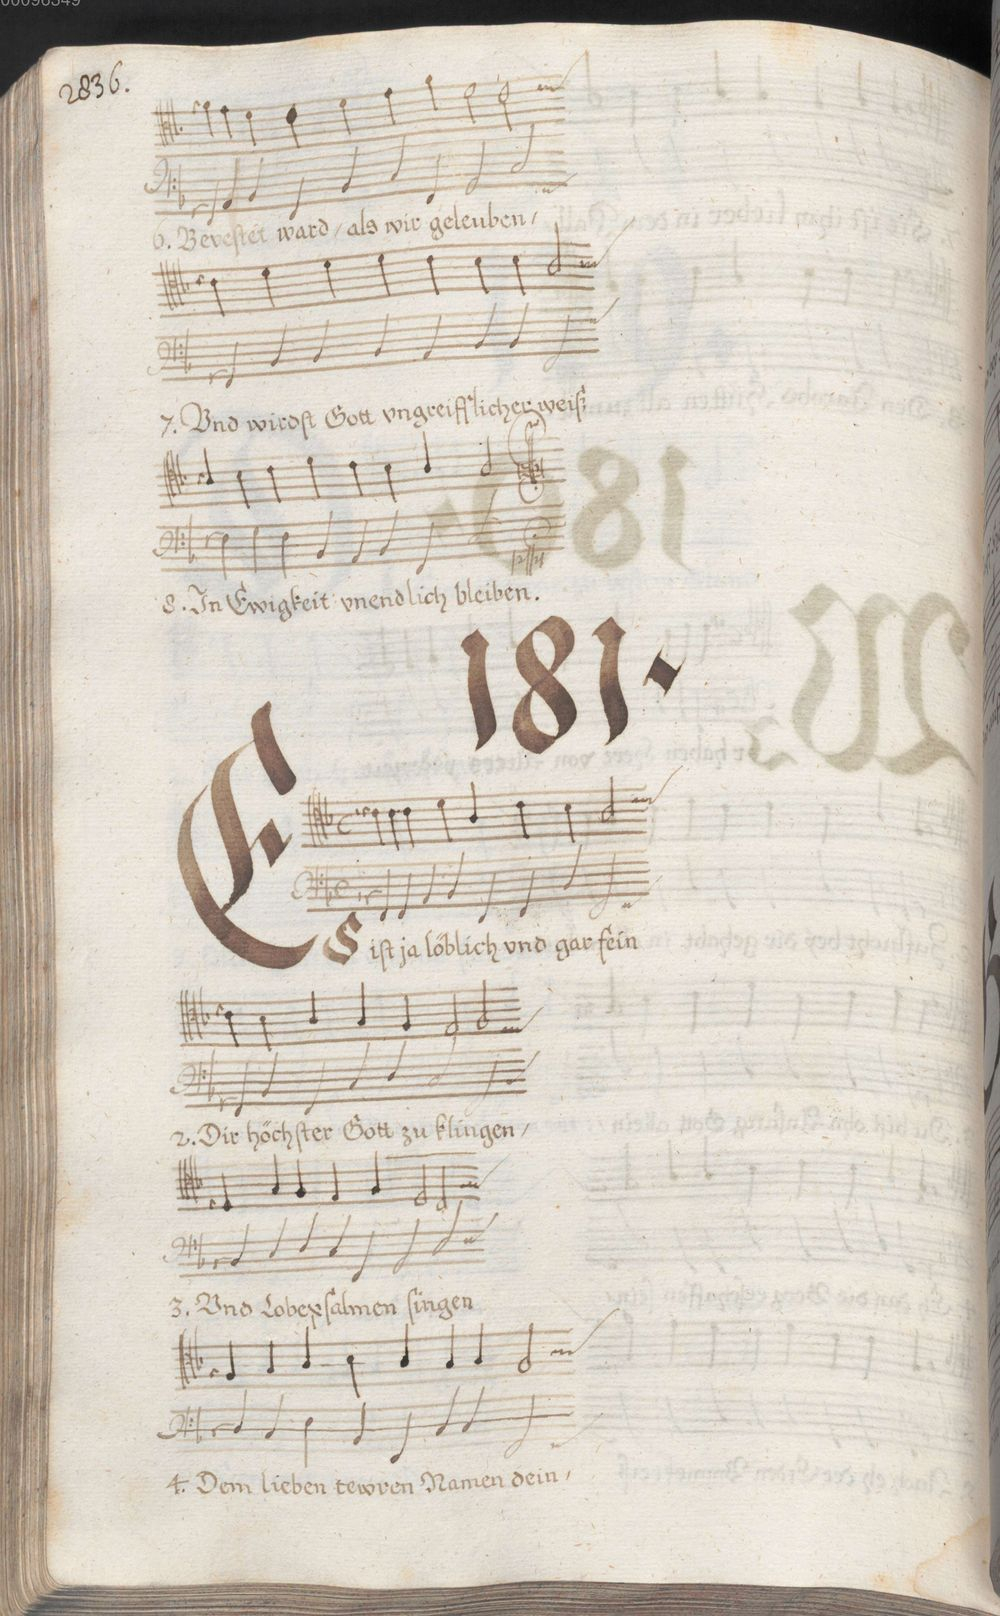 2836.
6. Bevestet ward / als wir geleuben /
7. Vnd wirdst Gott vngreifflicher weiß
8. In Ewigkeit vnendlich bleiben.
181.
Es ist ja löblich vnd gar fein
2. Dir höchster Gott zu klingen /
3. Vnd Lobepsalmen singen
4. Dem lieben tewren Namen dein /